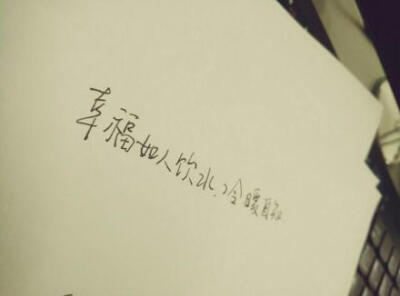 幸福如人饮水,冷暖自知